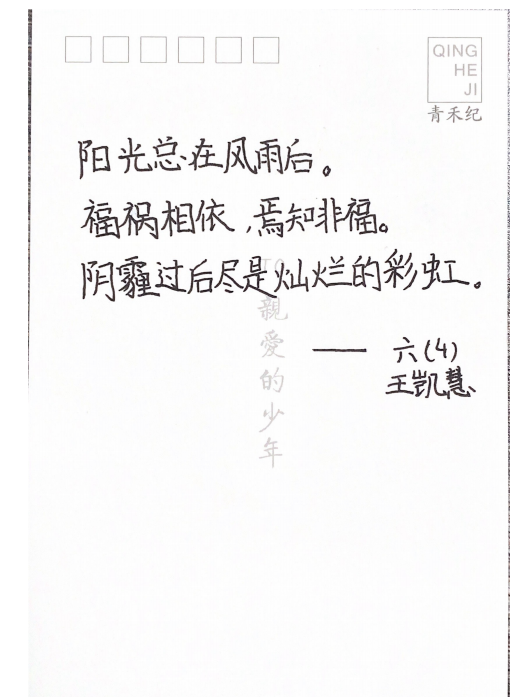 QING
HE
JI
青禾纪
阳光总在风雨后。
福祸相依,焉知非福。
阴霾过后尽是灿烂的彩虹。
—— 六(4)
王凯慧
TO
親愛的少年